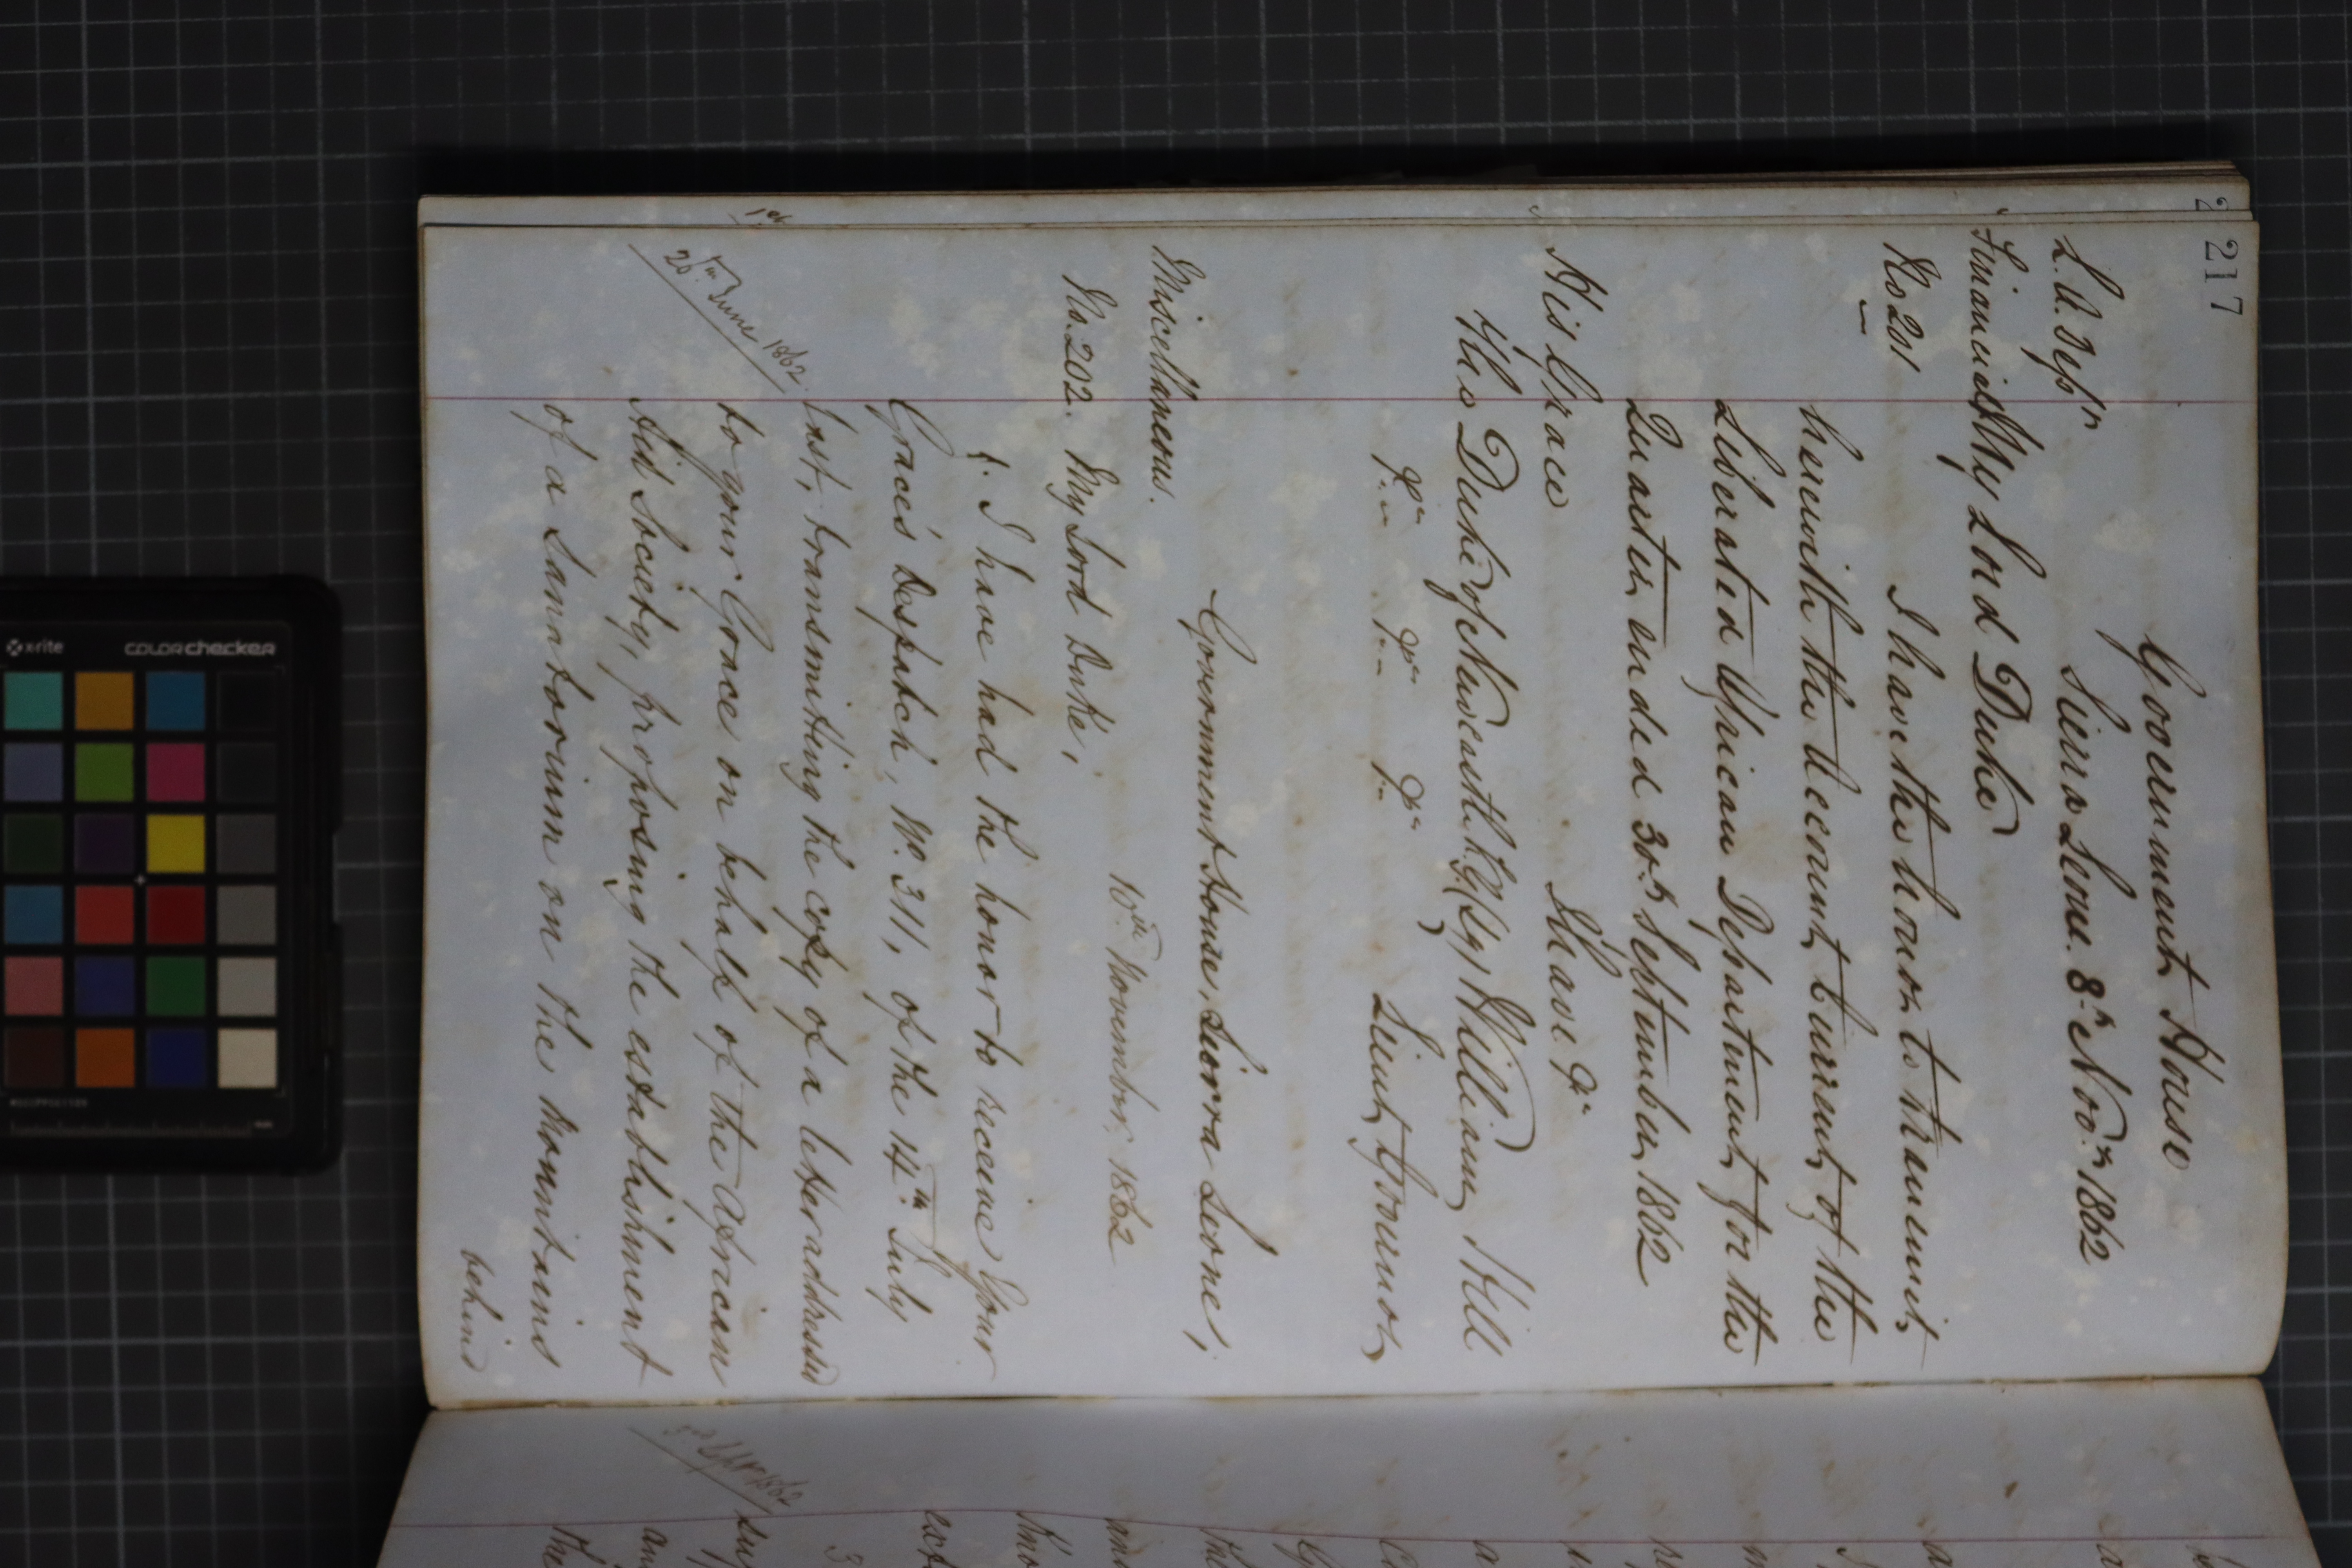 217
Government House
Sierra Leone. 8th Novr. 1862
L. A. Depn
Financial
My Lord Duke
No 201
I have the honor to transmit,
herewith the Account Current of the
Liberated African Department for the
Quarter ended 30th September, 1862
His Grace
I have &c
The Duke of Newcastle K.G. (Sg) William Hill
&c &c &c
Lieut, Governor
Government House, Sierra Leone,
Miscellaneous.
10th November, 1862
No. 202.
My Lord Duke,
1. I have had the honor to receive Your
Grace's Despatch, No. 311, of the 14th July
last, transmitting the copy of a letter addressed
20th June 1862.
to your Grace on behalf of the African
Aid Society, proposing the establishment
of a Sanatorium on the Mountains
behind
1st
1862